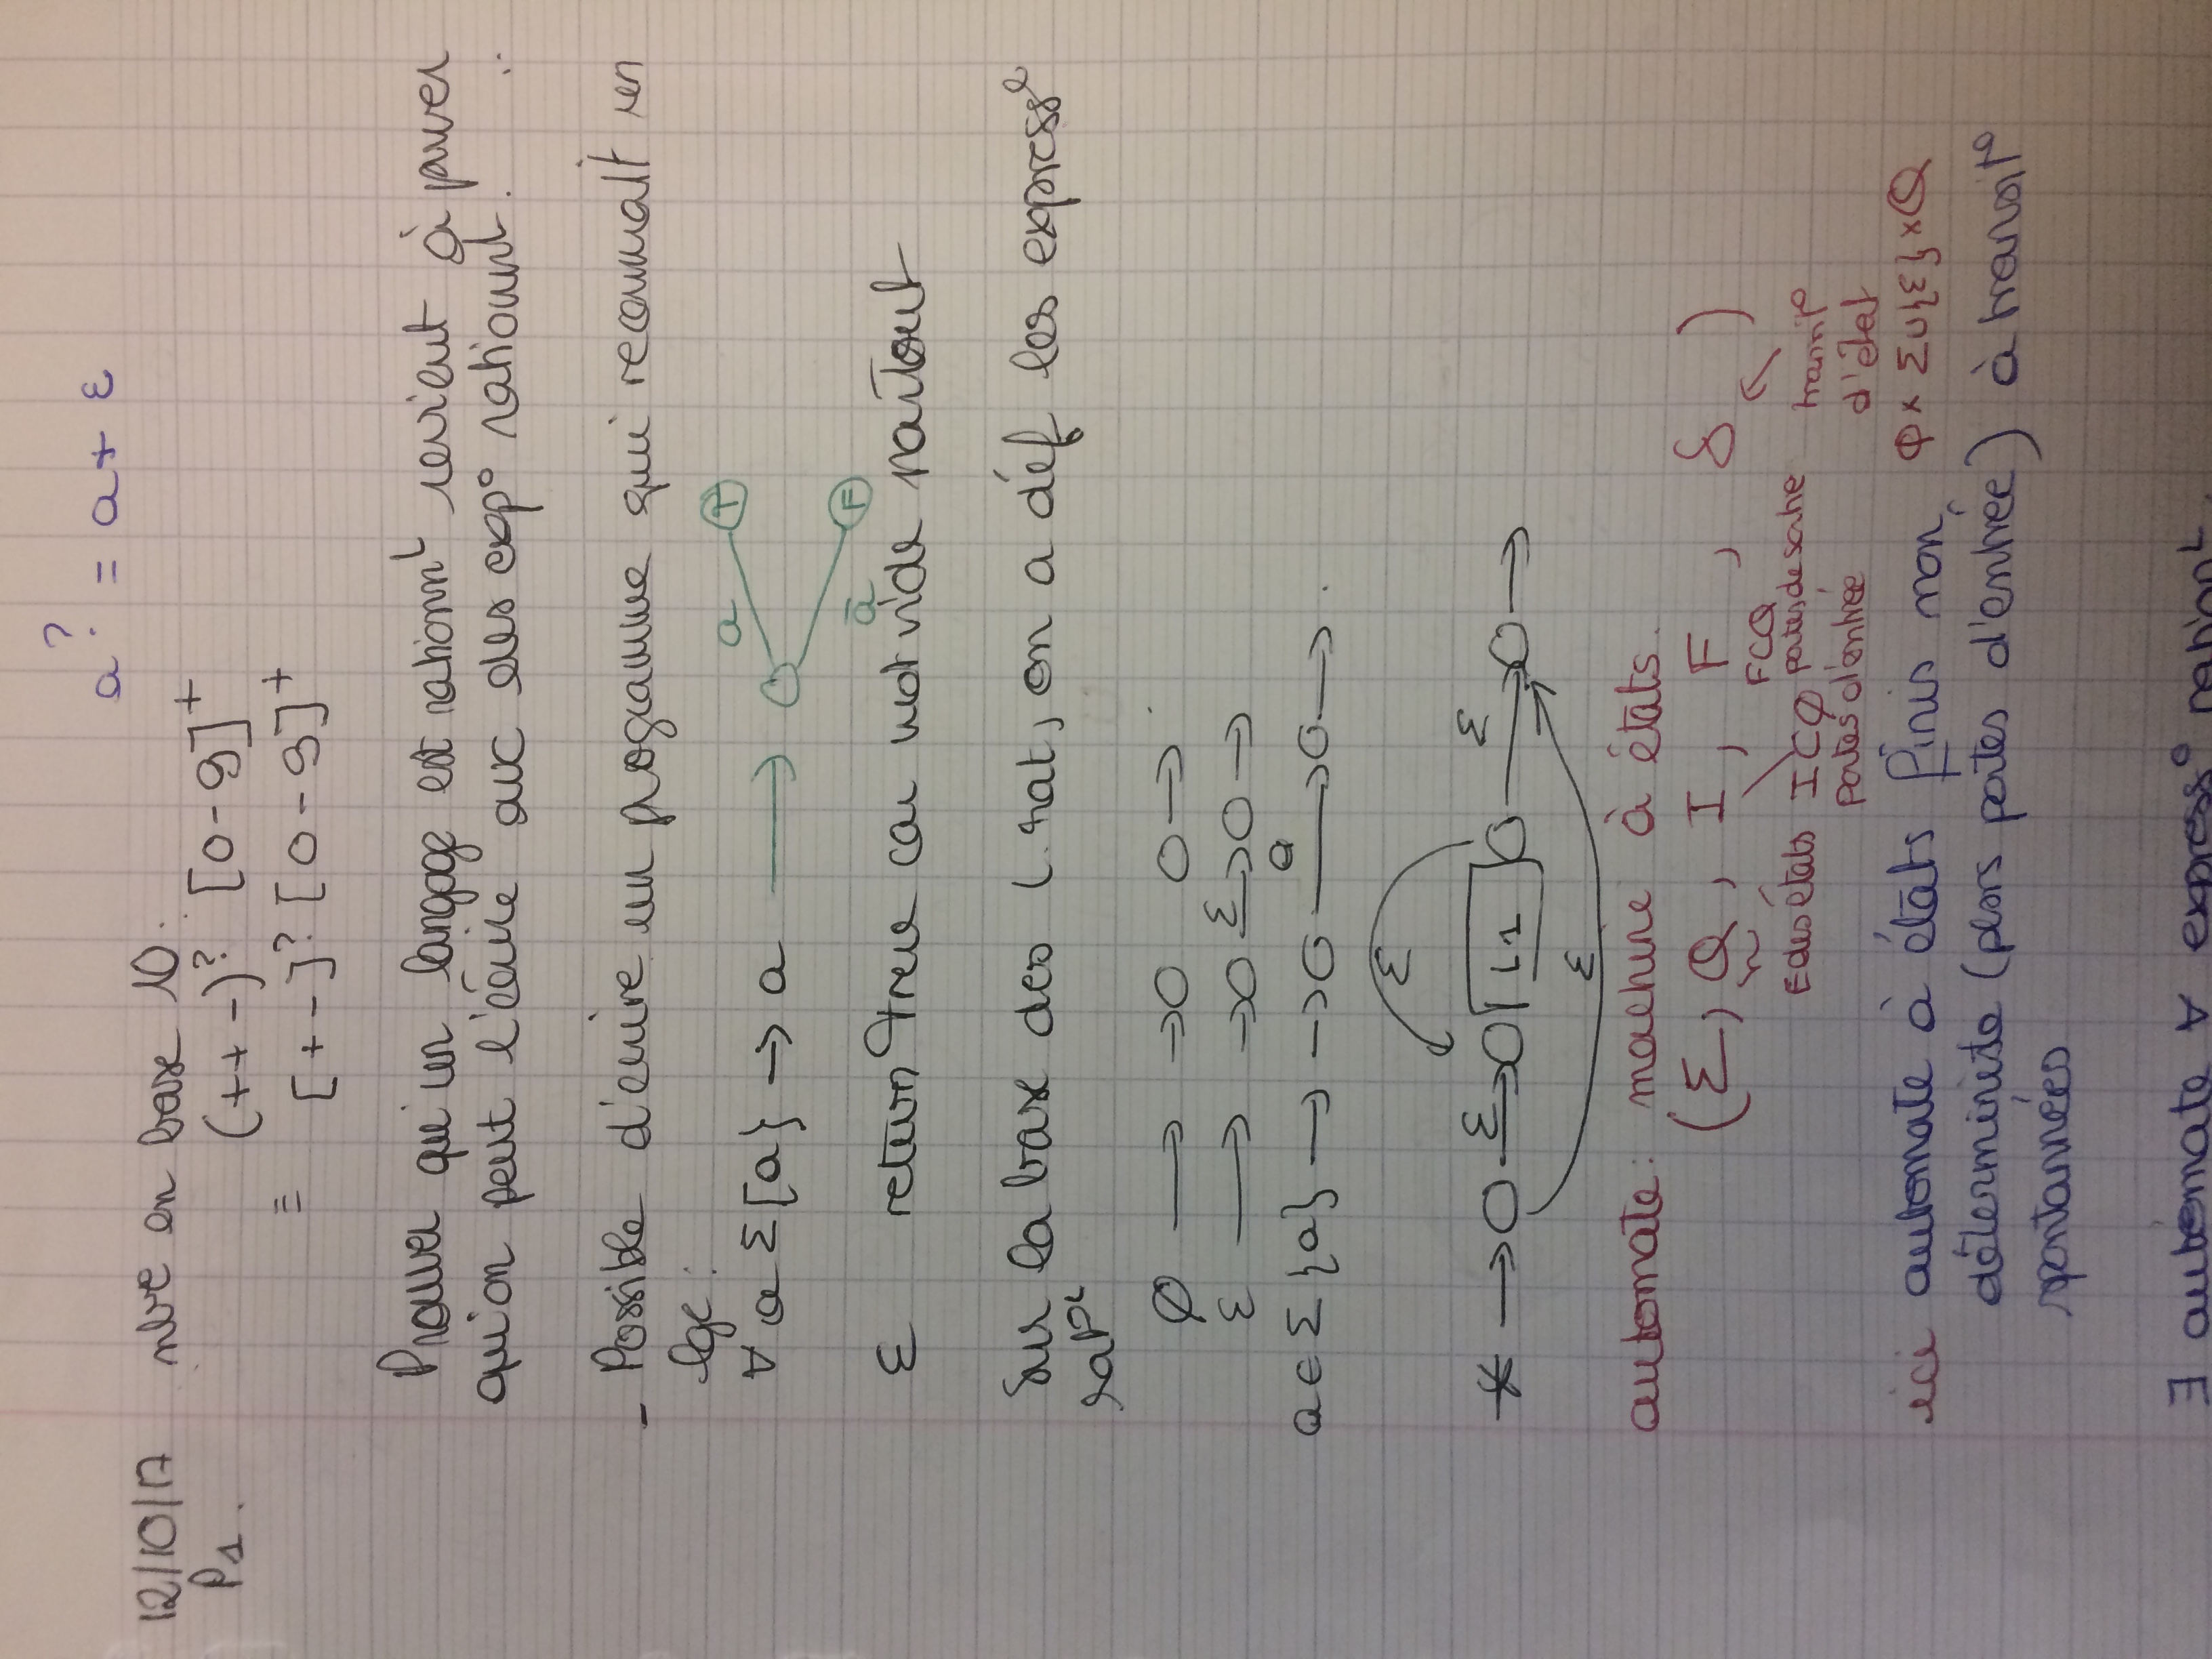 a? = a + ε
12/10/17 nbre en base 10.
P1. (+ + -)? [0-9]+
≡ [+-]? [0-9]+
Prouver qu'un langage est rationnL revient à prver
qu'on peut l'écrire avc des exp° rationnL.
- Possible d'écrire un programme qui reconnaît un
lge :
∀ a Σ{a} → a → a T
ā F
ε return true car mot vide partout
Sur la base des l. rat, on a déf les express°
rat
∅ → → O O →
ε → → O ε → O →
a ∈ Σ {a} → → O a → O → .
ε
* → O ε → O L1 O ε → O →
ε
automate : machine à états.
(Σ, Q, I, F, δ)
F⊂Q
E des états I⊂Q portes de sortie transit°
portes d'entrée d'état
ici automate à états finis non Q × Σ∪{ε} × Q
déterministe (plsrs portes d'entrée) à transit°
spontannées
∃ automate ∀ express° rationL.